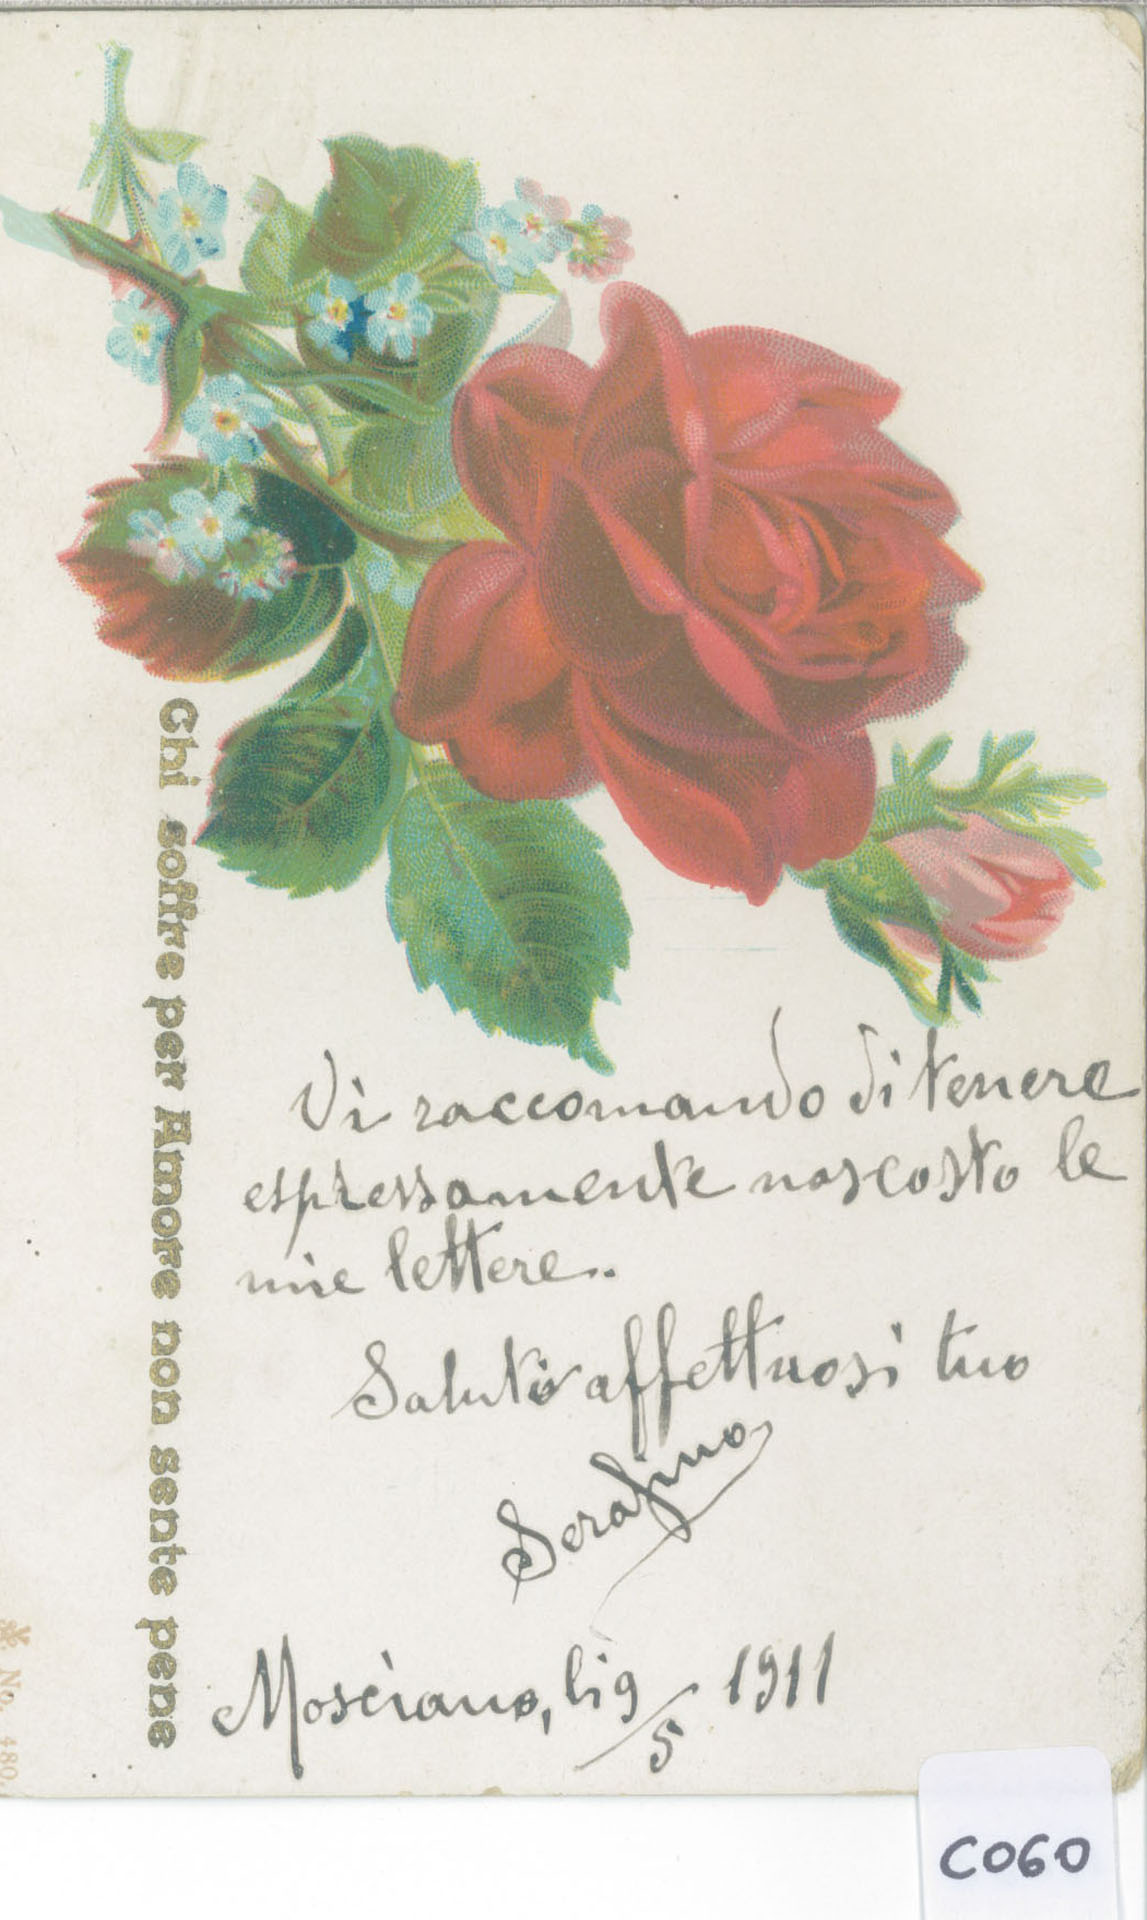 Chi soffre per Amore non sente pene
Vi raccomando di tenere
espressamente nascosto le
mie lettere..
Saluti affettuosi tuo
Serafino
Mosciano, li 9/5 1911
No. 480.
C060